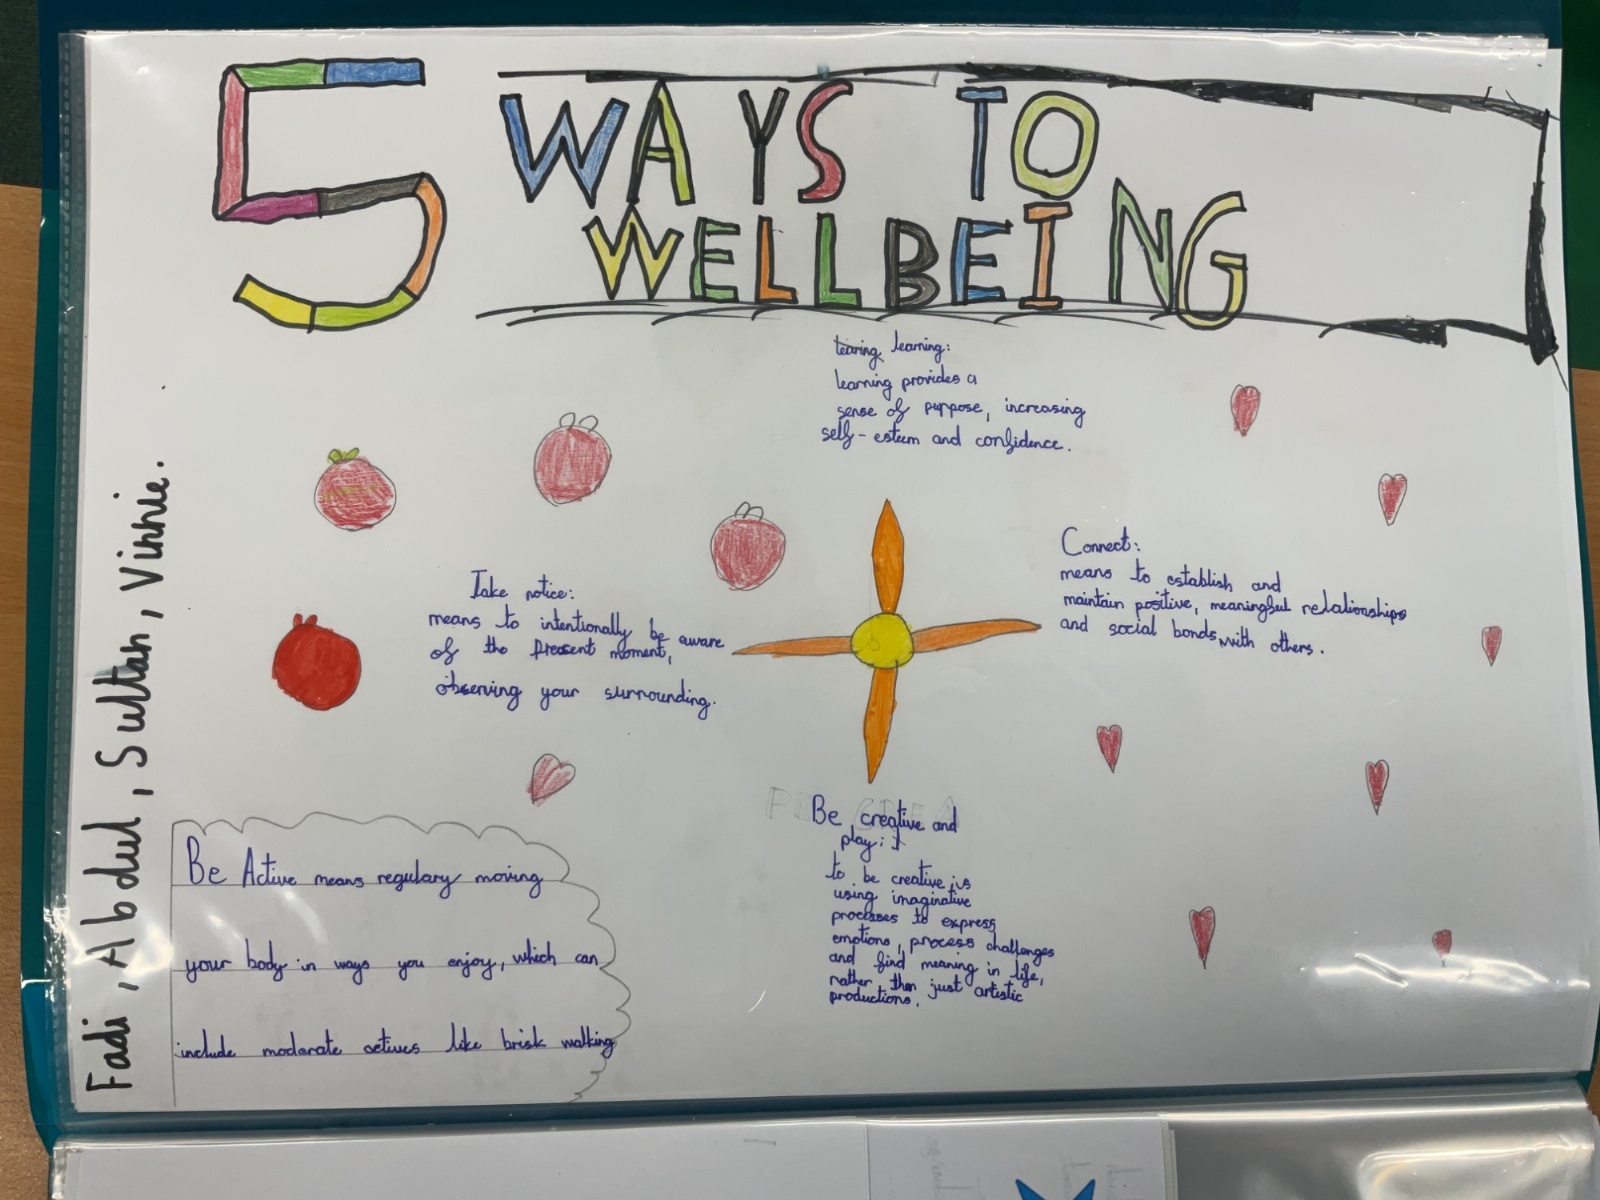 5 WAYS TO
WELLBEING
tearing learning:
learning provides a
sense of purpose, increasing
self-esteem and confidence.
Connect:
means to establish and
maintain positive, meaningful relationships
and social bonds with others.
Take notice:
means to intentionally be aware
of the present moment,
observing your surrounding.
Be creative and
play:
to be creative is
using imaginative
processes to express
emotions, process challenges
and find meaning in life,
rather then just artistic
productions.
Be Active means regulary moving
your body in ways you enjoy, which can
include moderate actives like brisk walking
Fadi, Abdul, Sultan, Vinnie.